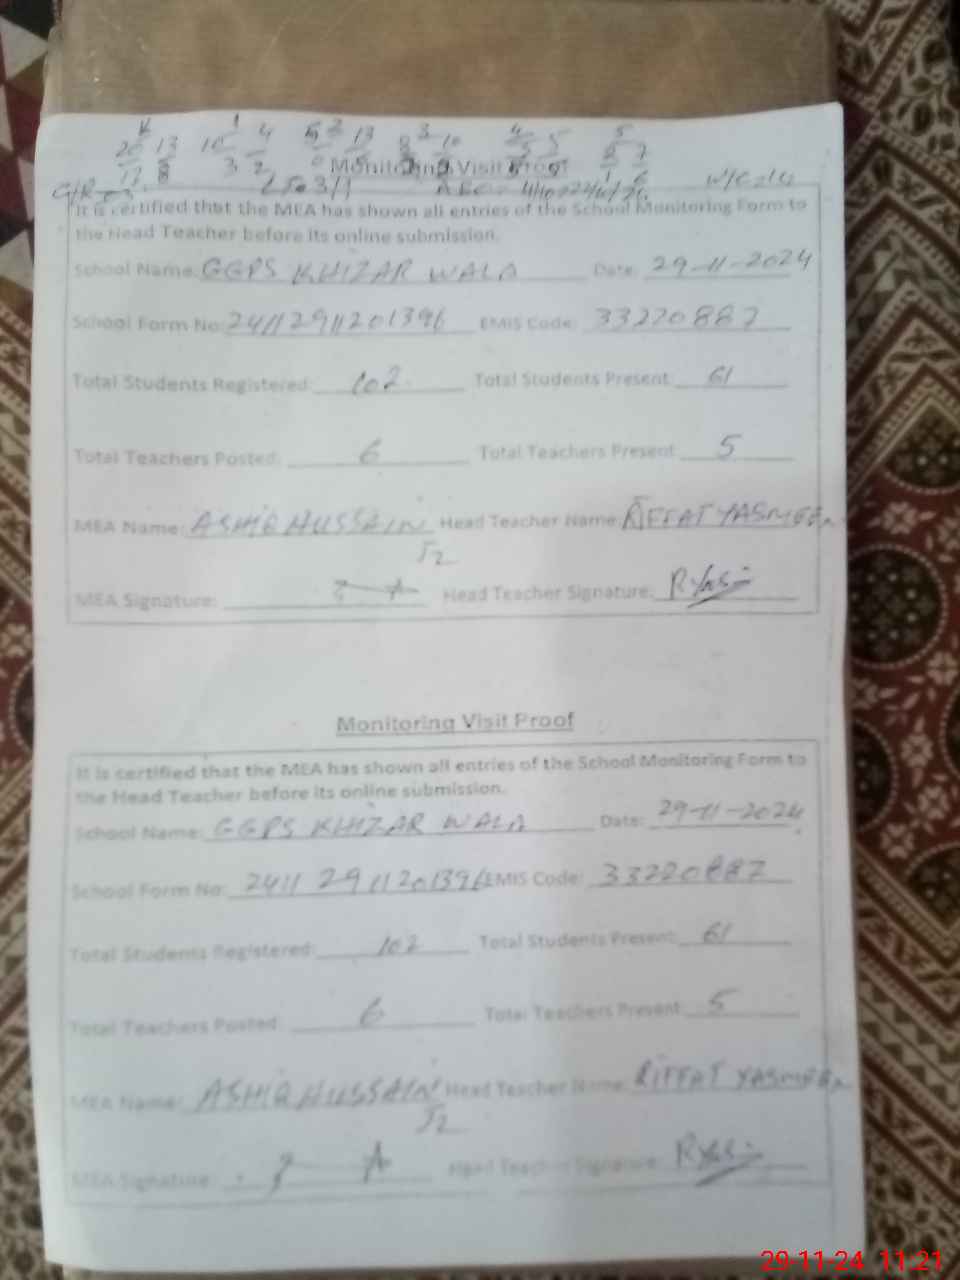 K 1 4 5 3 13 3 10 4 5 5
20 13 10
17 8 3 2 7
Monitoring Visit Proof
It is certified that the MEA has shown all entries of the School Monitoring Form to
the Head Teacher before its online submission.
School Name: GGPS KHIZAR WALA Date: 29-11-2024
School Form No: 24112911201396 EMIS Code: 33220887
Total Students Registered: 102 Total Students Present: 61
Total Teachers Posted: 6 Total Teachers Present: 5
MEA Name: ASHIQ HUSSAIN Head Teacher Name: RIFFAT YASMEEN
52
MEA Signature: Head Teacher Signature: RYas
Monitoring Visit Proof
It is certified that the MEA has shown all entries of the School Monitoring Form to
the Head Teacher before its online submission.
School Name: GGPS KHIZAR WALA Date: 29-11-2024
School Form No: 24112911201396 EMIS Code: 33220887
Total Students Registered: 102 Total Students Present: 61
Total Teachers Posted: 6 Total Teachers Present: 5
MEA Name: ASHIQ HUSSAIN Head Teacher Name: RIFFAT YASMEEN
52
MEA Signature: Head Teacher Signature: RYas
29-11-24 11:21